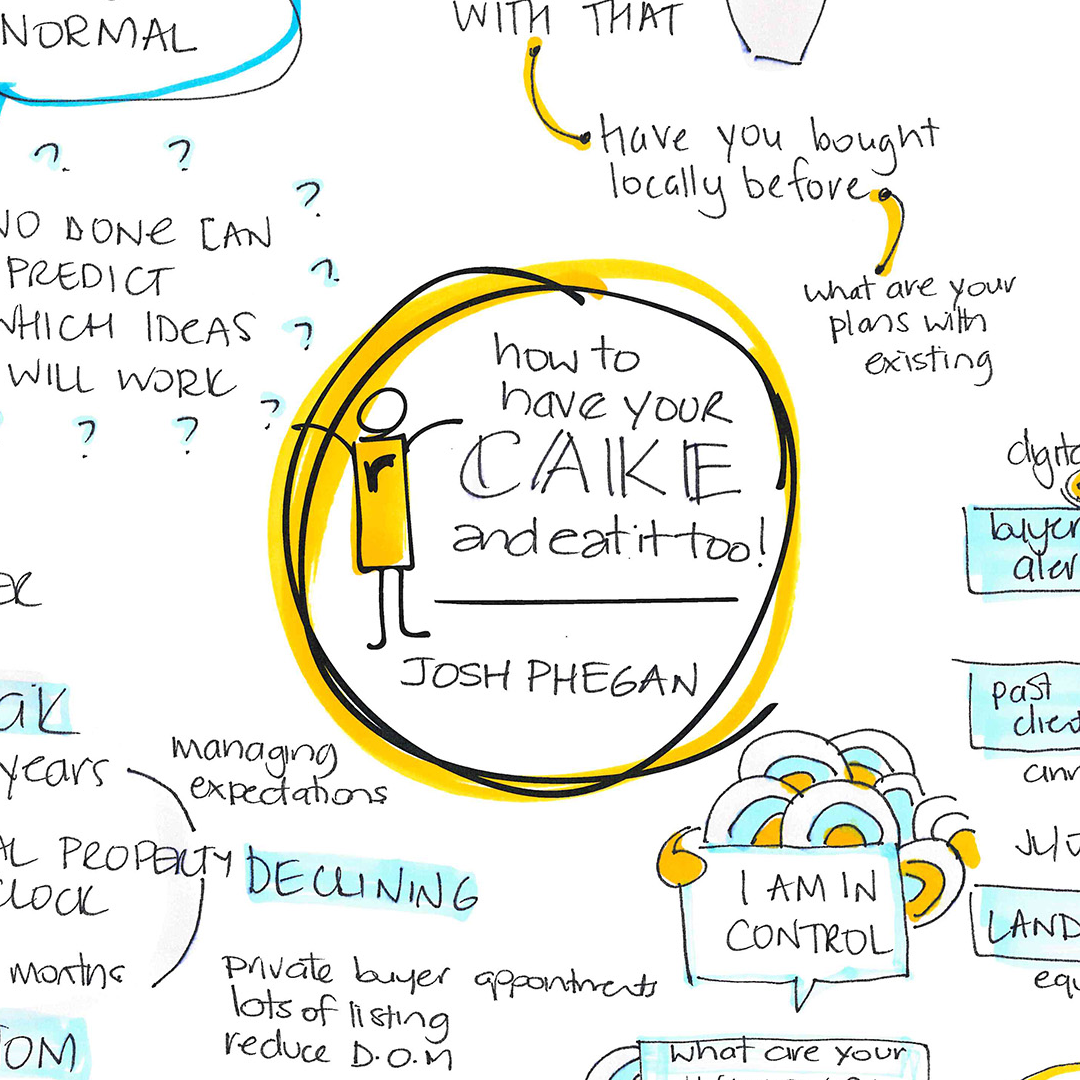 NORMAL
WITH THAT
have you bought
locally before
what are your
plans with
existing
? ? ?
NO DONE CAN
PREDICT
WHICH IDEAS
WILL WORK
? ? ? ? ?
how to
have your
CAKE
and eat it too!
r
JOSH PHEGAN
buyer
past
LAND
years
managing
expectations
PROPERTY
CLOCK
months
DECLINING
private buyer appointments
lots of listing
reduce D.O.M
I AM IN
CONTROL
what are your